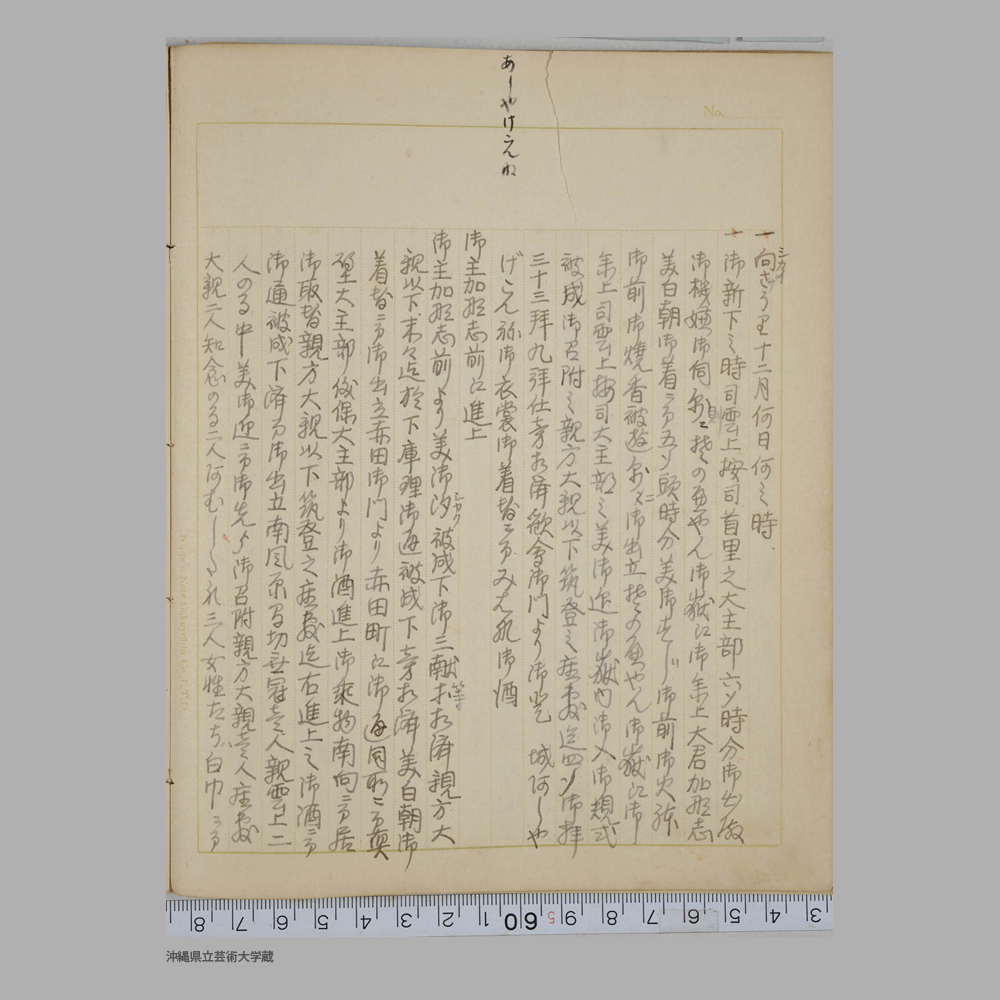 あしやけえね
No.
一 向ざうり十二月何日何之時
一 御新下之時司雲上按司首里之大主部六ツ時分御出仕
御機嫌御伺尓その西やん御嶽江御参上大君加那志
美白朝御着ニ而五ツ頭時分美御すじ御前御火鉢
御前御焼香被遊尓ニ御出立その西やん御嶽江御
参上司雲上按司大主部之美御迎御嶽内御入御規式
被成御召附之親方大親以下筑登之座敷迄四ツ御拝
三十三拝九拝仕旁相済歓会御門より御登 城阿しや
げこん祢御衣裳御着替ニ而みお飛御酒
御主加那志前江進上
御主加那志前より美御汐被成下御三献等相済親方大
親以下末々迄於下庫理御通被成下旁相済美白朝御
着替ニ而御出立赤田御門より赤田町江御通同所ニ而奥
聖大主部儀保大主部より御酒進上御乗物南向ニ而居
御取替親方大親以下筑登之座敷迄右進上之御酒ニ而
御通被成下済而御出立南風原間切無冠壱人親雲上二
人のろ中美御迎ニ而御先ゟ御召附親方大親壱人座敷
大親二人知念のろ二人阿むしられ三人女性たち白巾ニ而
3 4 5 6 7 8 9 60 1 2 3 4 5 6 7 8
沖縄県立芸術大学蔵